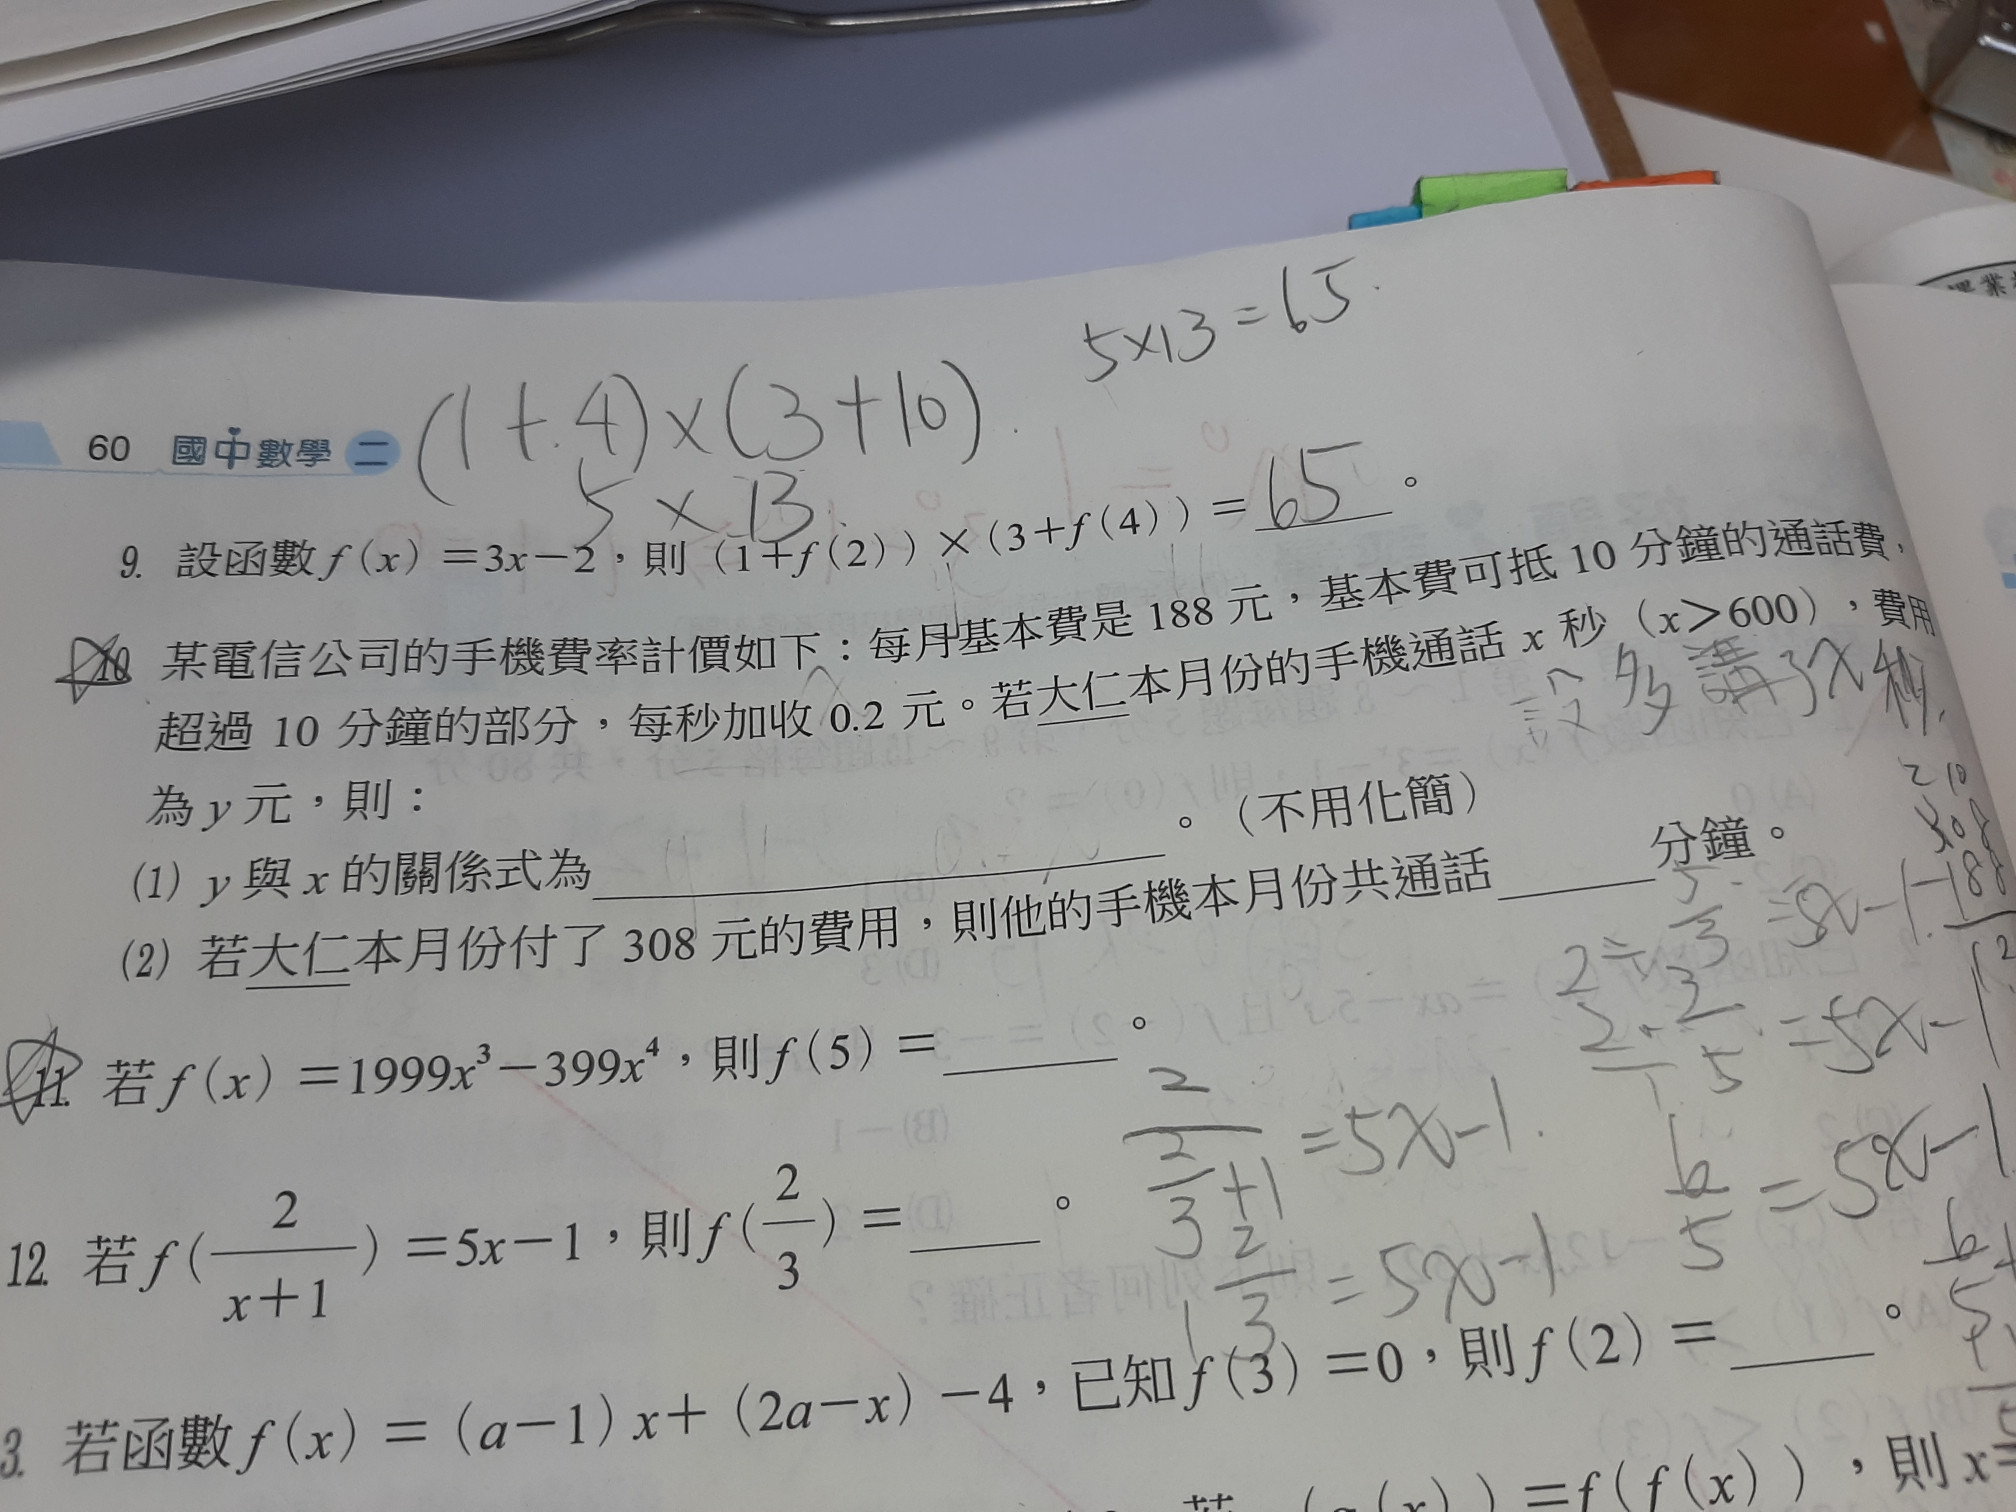 5×13=65.
(1+4)×(3+10)
60 國中數學 二
5×13
9. 設函數 f(x)=3x-2，則(1+f(2))×(3+f(4))=65。
10 某電信公司的手機費率計價如下：每月基本費是 188 元，基本費可抵 10 分鐘的通話費，
超過 10 分鐘的部分，每秒加收 0.2 元。若大仁本月份的手機通話 x 秒（x>600），費用
設多講了x秒.
為 y 元，則：
(1) y 與 x 的關係式為______。（不用化簡）
(2) 若大仁本月份付了 308 元的費用，則他的手機本月份共通話______分鐘。
308
-188
12
2÷5/3=5x-1
2/1·3/5=5x-1
11. 若 f(x)=1999x³-399x⁴，則 f(5)=______。
2/(2/3+1)=5x-1.
6/5=5x-1
12. 若 f(2/(x+1))=5x-1，則 f(2/3)=____。
=5x-1
6/5+
3. 若函數 f(x)=(a-1)x+(2a-x)-4，已知 f(3)=0，則 f(2)=____。
(x))=f(f(x))，則 x=